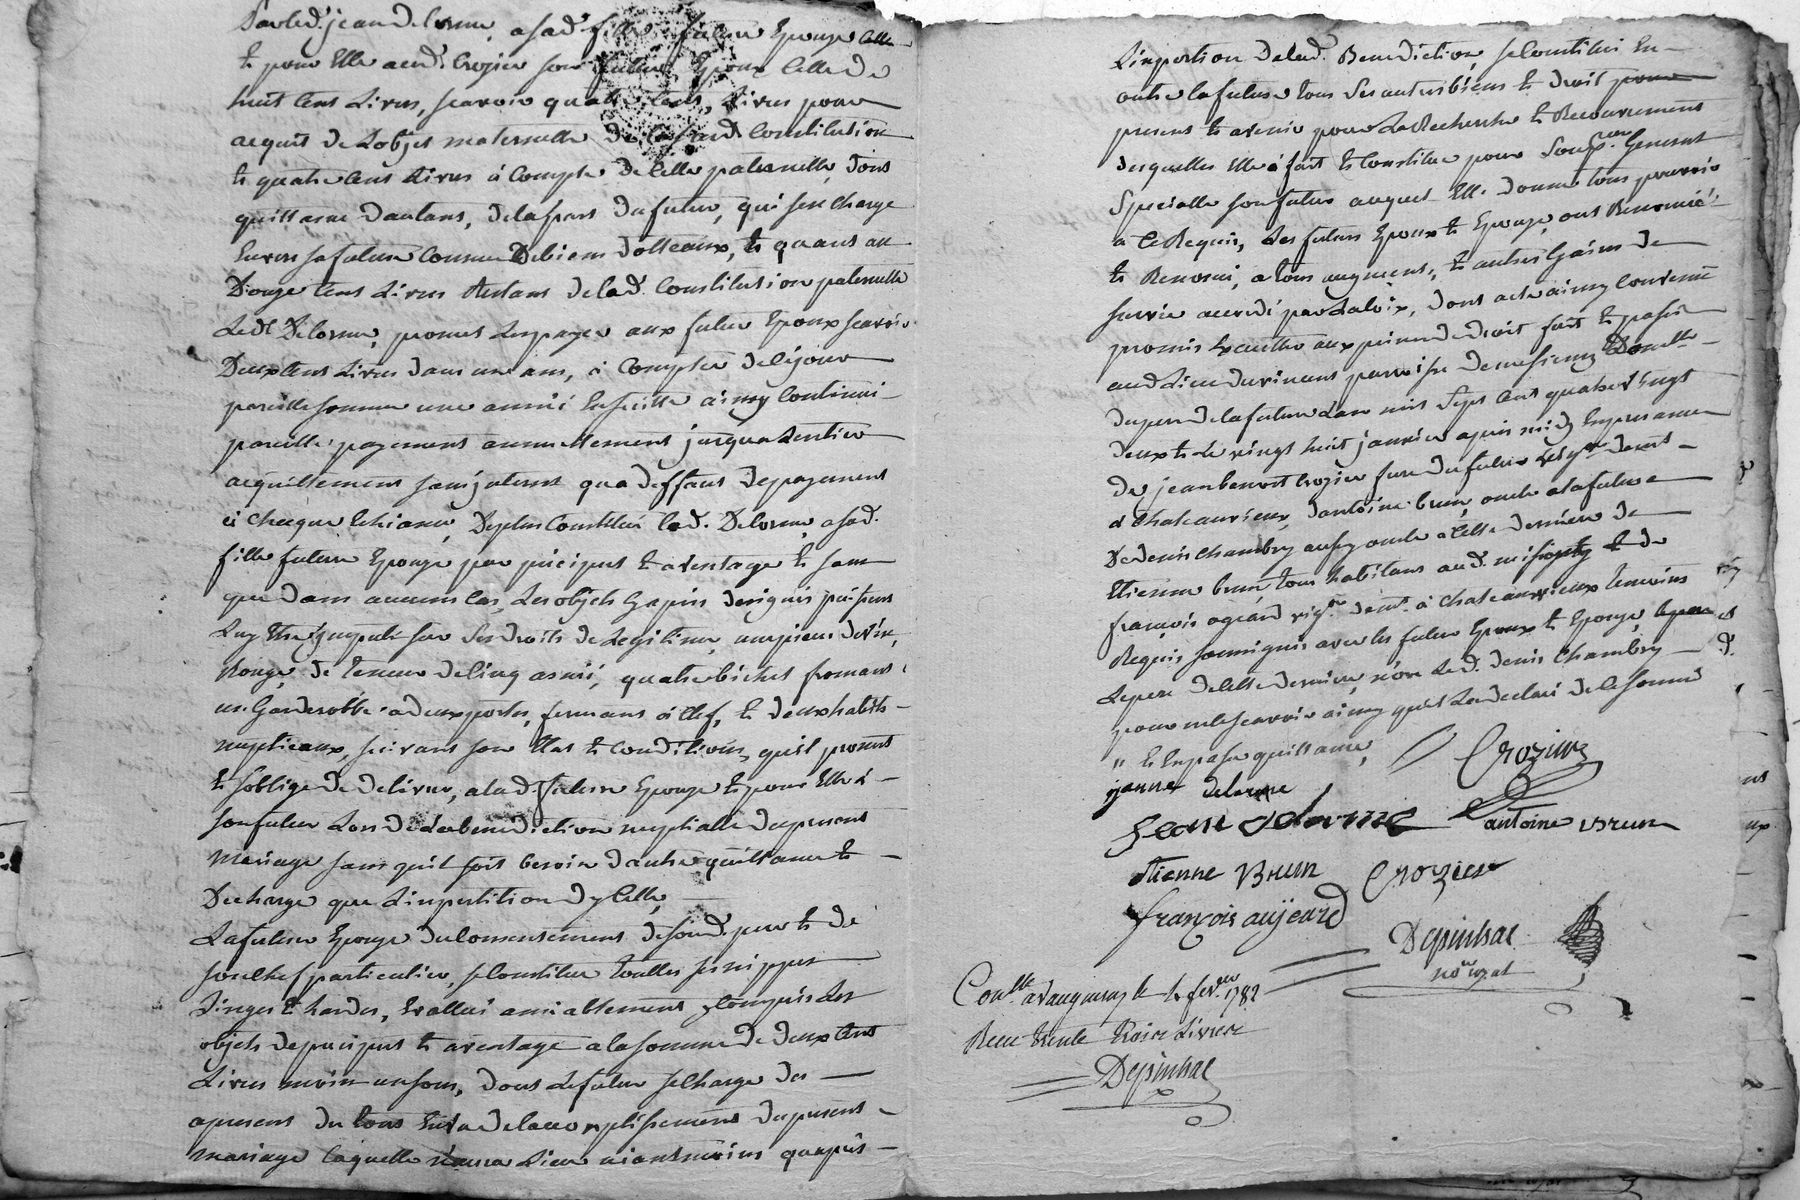 Par led. jean delorme, a sad. fille future Epouze celle
et pour Elle aud. Crozier son futur Epoux celle de
huit cens Livres, scavoir quatre cens Livres pour
acquit de Lobjet maternelle de lad. Constitution
et quatre cens Livres à Compte de celle paternelle, dont
quittance dautant, de la part du futur, qui s'en charge
Envers sa future comme de biens dotteaux, et quant au
Douze cens Livres Restans de lad. Constitution paternelle
Led. Delorme, promet Les payer aux futur Epoux scavoir
Deux cens Livres dans une ans, à Compter de ce jour
pareille somme une année Ensuitte ainsy Continüé
pareille payement annuellement jusqua Lentier
acquittement sans jnterest qua deffaut depayement
à chaque Echeance, De plus Constitüé led. Delorme, a sad.
fille future Epouze par précipus et avantage et sans
que dans aucuns cas, Les objets Cy apres designés puissent
Luy Etre jmputé sur Ses droits de Legitime, une piece de vin,
Rouge, de teneur de cinq asnée, quatre bichet froment
une Garderobbe a deux portes, fermant à clef, et deux habits
nuptieaux, suivant son Etat et conditions, quil promet
et soblige de delivrer, a lad. future Epouze et pour Elle à
son futur Lors de La benediction nuptialle du present
mariage sans quil soit besoin dautre quittance et
Decharge que Linpertition dycelle,
La future Epouze du Consentement de sond. pere et de
son chef particulier, se Constitue toutes ses nippes
Linges et hardes, Evallué amiablement y compris Les
objets de precipus et avantage a la somme de deux cens
Livres moins un sous, dont Le futur se charge des
apresent du tous En vu de laccomplissement du present
mariage Laquelle n'aura Lieu néantmoins quapres
Linpertion de lad. Benediction, se Constitüé En
outre la future tous Ses autres biens et droit
present et avenir pour La Recherche et Recouvrement
desquelles Elle a fait et Constitue pour Son procr. General
Specialle son futur auquel Elle donne tous pouvoir
a ce Requis, Les futurs Epoux et Epouze, ont Renoncé
et Renonci, a tous augment, et autres Gains de
survie accordé par La loix, dont acte ainsy convenu
promis Executter aux peines de droit fait et passé
aud. Lieu du vincent parroisse de messimy Domelle
du pere de la future Lan mil Sept cens quatre vingt
deux et Le vingt huit janvier apres midy En presance
de jean benoit Crozier frere du futur demt.
a Chateauvieux, dantoine brun, oncle a la future
De denis Chambry aussy oncle a celle derniere de
Etienne brun tous habitans aud. messimy et de
françois ogeard vign. demt. à Chateauvieux temoins
Requis soussignés avec les futur Epoux et Epouze,
Le pere de cette derniere, non Led. denis Chambry
pour ne le scavoir ainsy quil La declaré de ce sommé
" et Enpasse quittance, Crozier
janne delorme
Jean delorme antoine Brun
Etienne Brun Crozier
françois aujeard
Depinhac
Conllé. a Vaugneray le 1er fevrier 1782
Reçu trente trois Livres
Depinhac